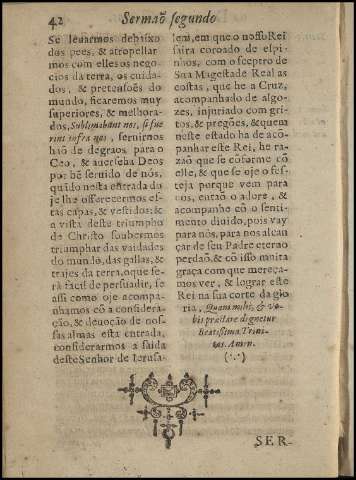 42 Sermaõ segundo
Se levarmos debaixo
dos pees, & atropellar-
mos com elles os nego-
cios da terra, os cuida-
dos, & pretensões do
mundo, ficaremos muy
superiores, & melhora-
dos, Sublimabunt nos, si fue
rint infra nos, servirnos
hão de degraos para o
Ceo, & averseha Deos
por bẽ servido de nós,
quãdo nesta entrada du
je lhe offerecermos es-
tas capas, & vestidos: &
a vista deste triumpho
de Christo soubermos
triumphar das vaidades
do mundo, das gallas, &
trajes da terra, o que se-
rà facil de persuadir, se
assi como oje acompa-
nhamos cõ a considera-
ção, & devoção de nos-
sas almas esta entrada,
considerarmos a saida
deste Senhor de Ierusa-
lem, em que o nosso Rei
saira coroado de espi-
nhos, com o sceptro de
Sua Magestade Real as
costas, que he a Cruz,
acompanhado de algo-
zes, injuriado com gri-
tos, & pregões, & quem
neste estado ha de aco-
panhar este Rei, he ra-
zaõ que se cõforme cõ
elle, & que se oje o fes-
teja porque vem para
nos, entaõ o adore, &
acompanhe cõ o senti-
mento divido, pois vay
para nós, para nos alcan
çar de seu Padre eterno
perdaõ, & cõ isso muita
graça com que mereça-
mos ver, & lograr este
Rei na sua corte da glo
ria, Quam mihi, & vo-
bis præstare dignetur
Beatissima Trini-
tas. Amen.
(∵)
SER-